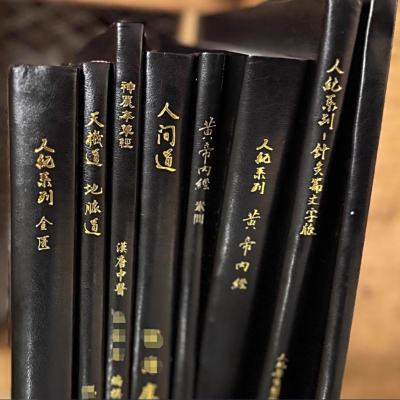 人紀系列 金匱
天機道 地脈道
神農本草經
漢唐中醫
人间道
黃帝內經 素問
人紀系列 黃帝內經
人紀系列-針灸篇文字版